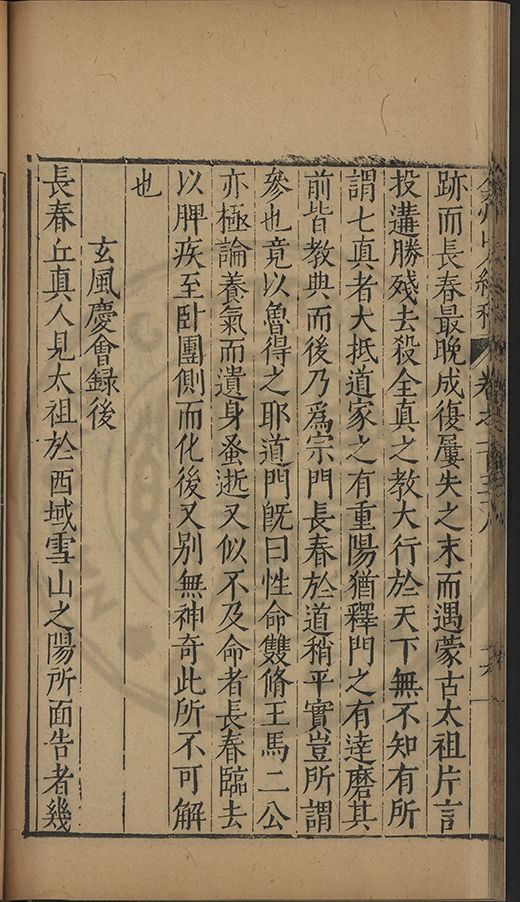 弇州山人續稿 卷之一百五十八 十六
跡而長春最晚成復屢失之末而遇蒙古太祖片言
投遘勝殘去殺全真之教大行於天下無不知有所
謂七真者大抵道家之有重陽猶釋門之有達磨其
前皆教典而後乃爲宗門長春於道稍平實豈所謂
參也竟以魯得之耶道門旣曰性命雙脩王馬二公
亦極論養氣而遺身蚤逝又似不及命者長春臨去
以脾疾至卧圊側而化後又别無神奇此所不可解
也
玄風慶會録後
長春丘真人見太祖於西域雪山之陽所面告者幾